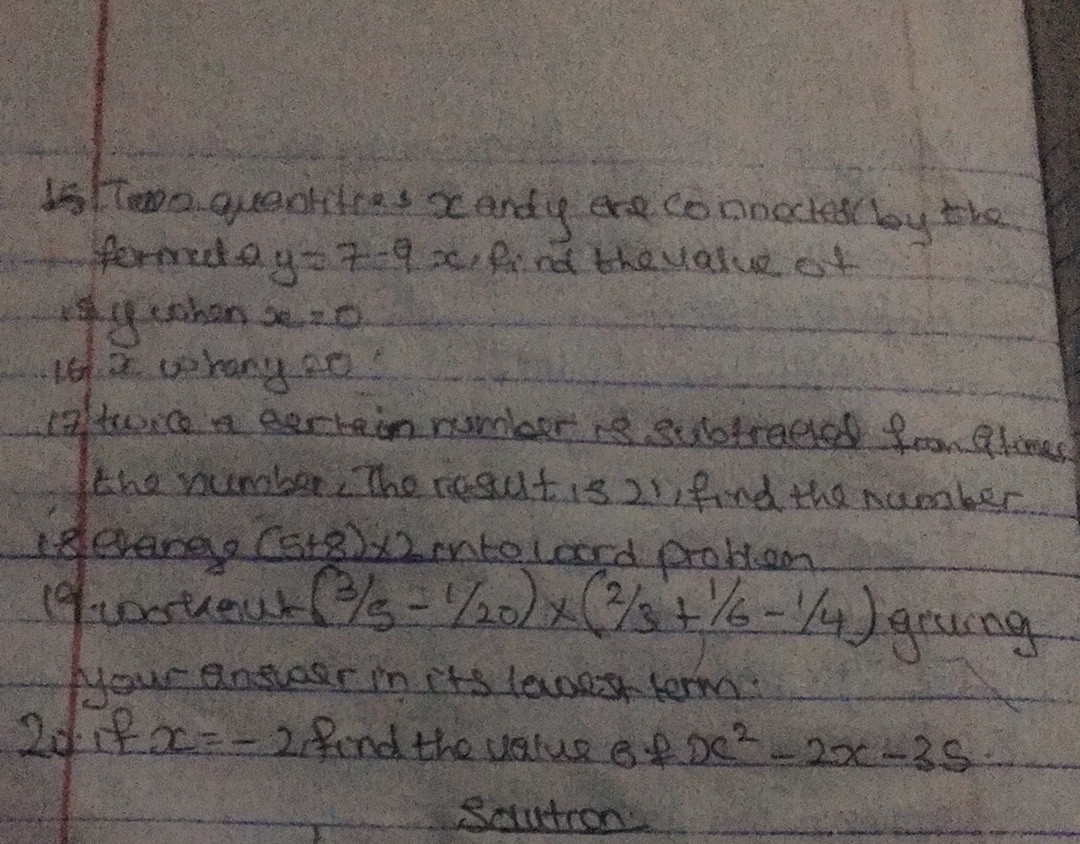 15 Two quantities x and y are connected by the
formula y=7-9x, find the value of
15 y when x=0
16 x when y=0
17 twice a certain number is subtracted from 9times
the number. The result is 21, find the number
18 change (5+8)×2 into word problem
19 workout (3/5 - 1/20) × (2/3 + 1/6 - 1/4) giving
your answer in its lowest term.
20. if x = -2, find the value of x² - 2x - 35.
Solution